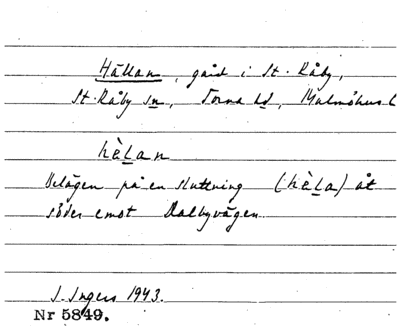 Hällan, gård i St. Råby,
St. Råby sn, Torna hd, Malmöhus l
hèlan
Belägen på en sluttning (hèla) åt
söder emot Dalbyvägen.
I. Ingers 1943.
Nr 5849.